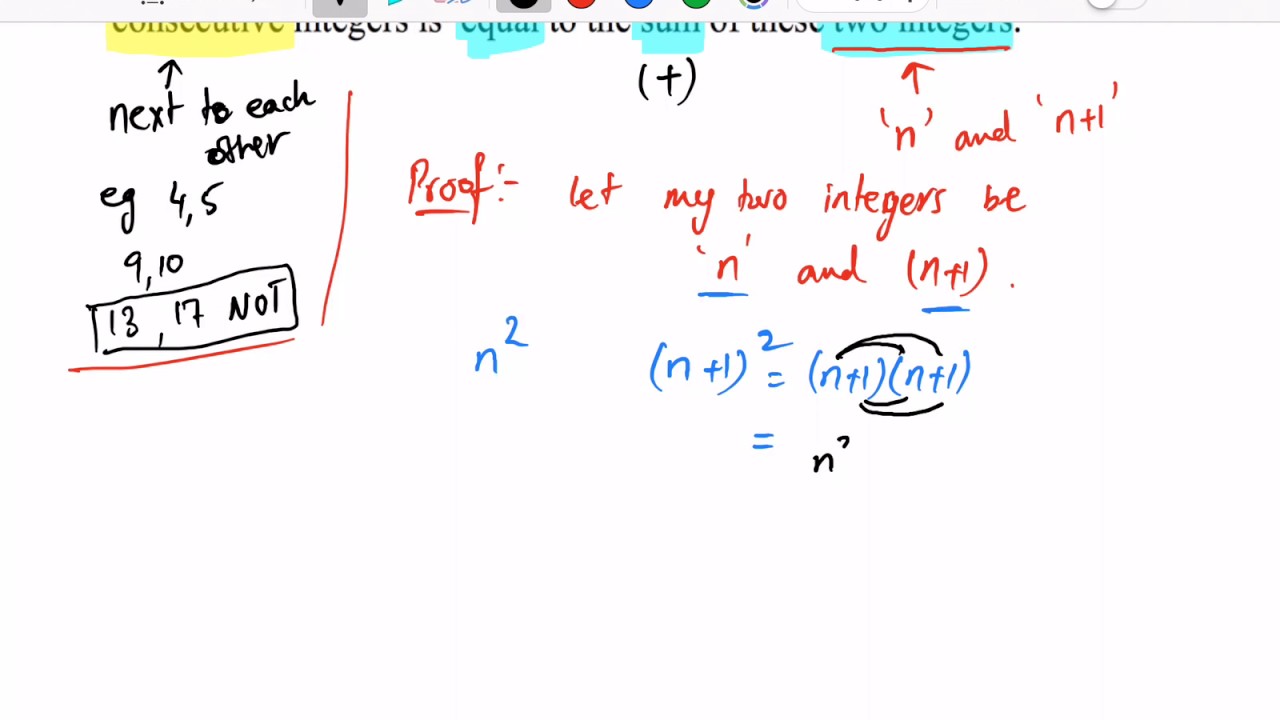 consecutive integers is equal to the sum of these two integers.
(+)
next to each
other
'n' and 'n+1'
eg 4,5
9,10
13 , 17 NOT
Proof:- let my two integers be
'n' and (n+1).
n² (n+1)² = (n+1)(n+1)
= n²